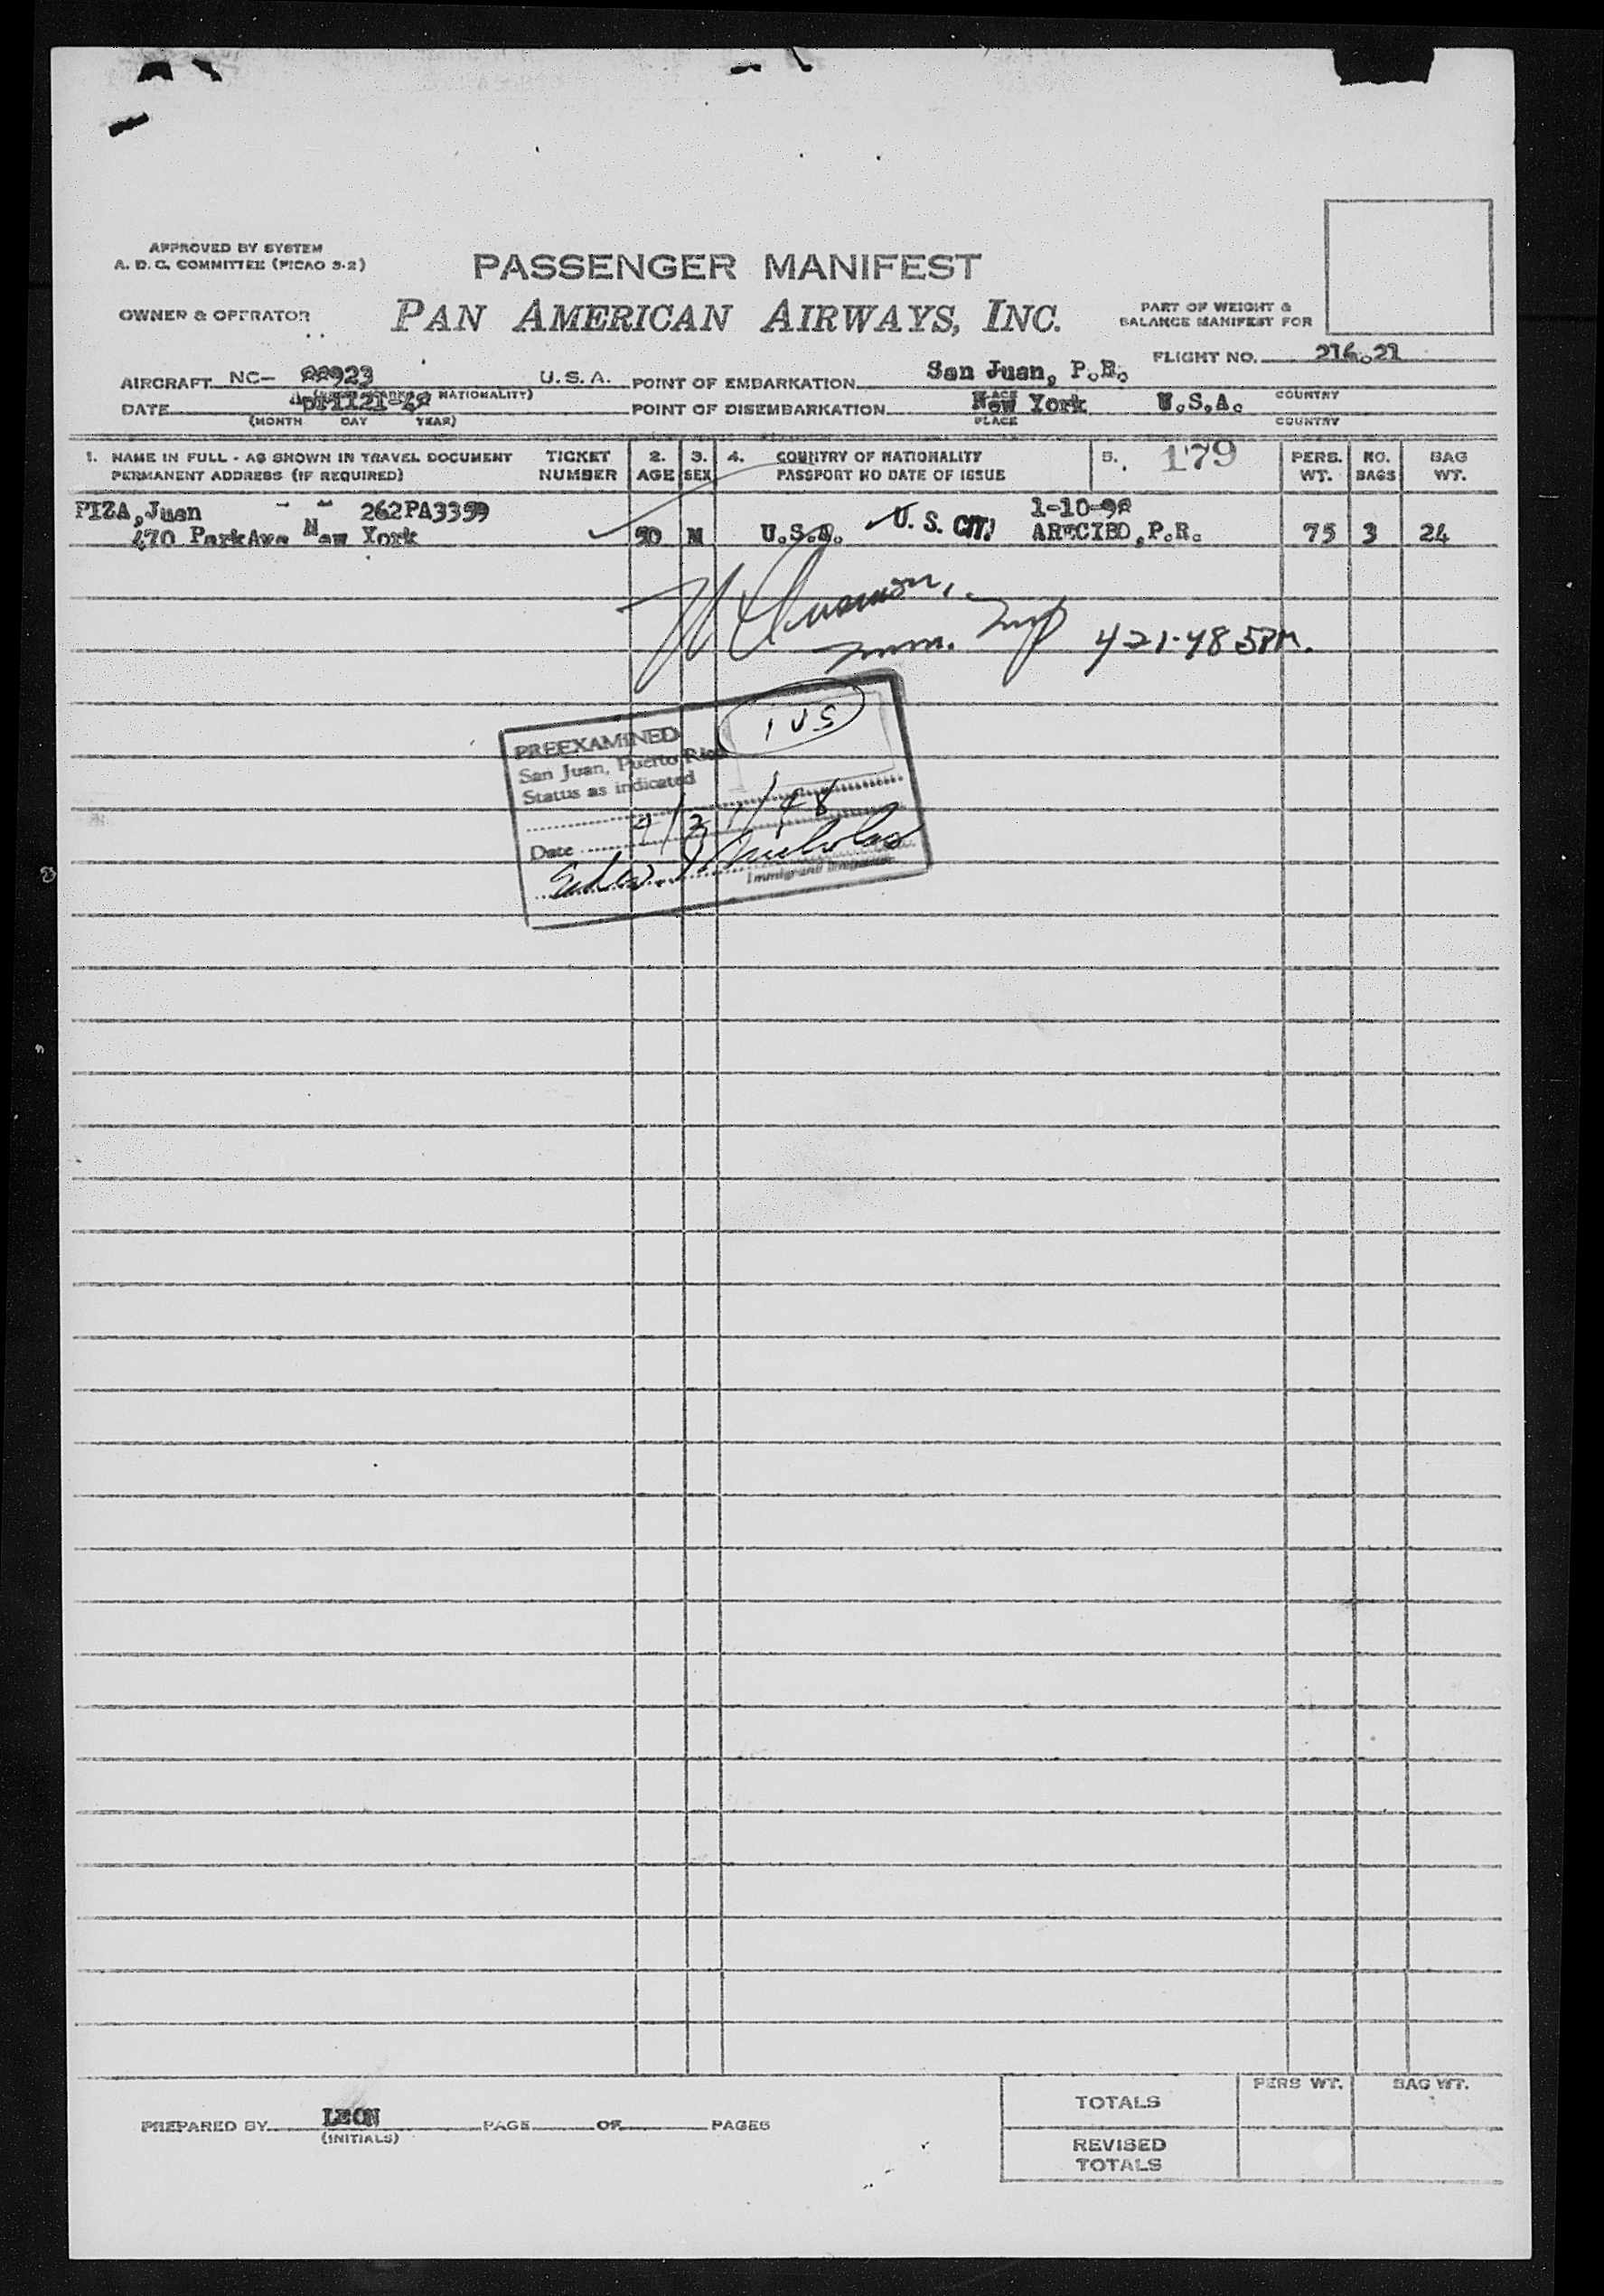 APPROVED BY SYSTEM
A. D. C. COMMITTEE (PICAO 3-2)
PASSENGER MANIFEST
OWNER & OPERATOR
PAN AMERICAN AIRWAYS, INC.
PART OF WEIGHT &
BALANCE MANIFEST FOR
FLIGHT NO. 216.21
AIRCRAFT NC- 88923 U.S.A.
NATIONALITY)
POINT OF EMBARKATION San Juan, P.R.
PLACE COUNTRY
DATE April21-48
(MONTH DAY YEAR)
POINT OF DISEMBARKATION New York U.S.A.
PLACE COUNTRY
1. NAME IN FULL - AS SHOWN IN TRAVEL DOCUMENT
PERMANENT ADDRESS (IF REQUIRED)
TICKET
NUMBER
2.
AGE
3.
SEX
4. COUNTRY OF NATIONALITY
PASSPORT NO DATE OF ISSUE
5. 179
PERS.
WT.
NO.
BAGS
BAG
WT.
PIZA,Juan - - 262PA3359 1-10-98
470 ParkAve New York 50 M U.S.A. U. S. CIT. ARECIBO,P.R. 75 3 24
4-21-48 5PM.
PREEXAMINED
San Juan, Puerto Rico
Status as indicated
1 US
Date 4/21/48
Nicholas
Immigrant Inspector
PREPARED BY LEON PAGE OF PAGES
(INITIALS)
PERS WT. BAG WT.
TOTALS
REVISED
TOTALS